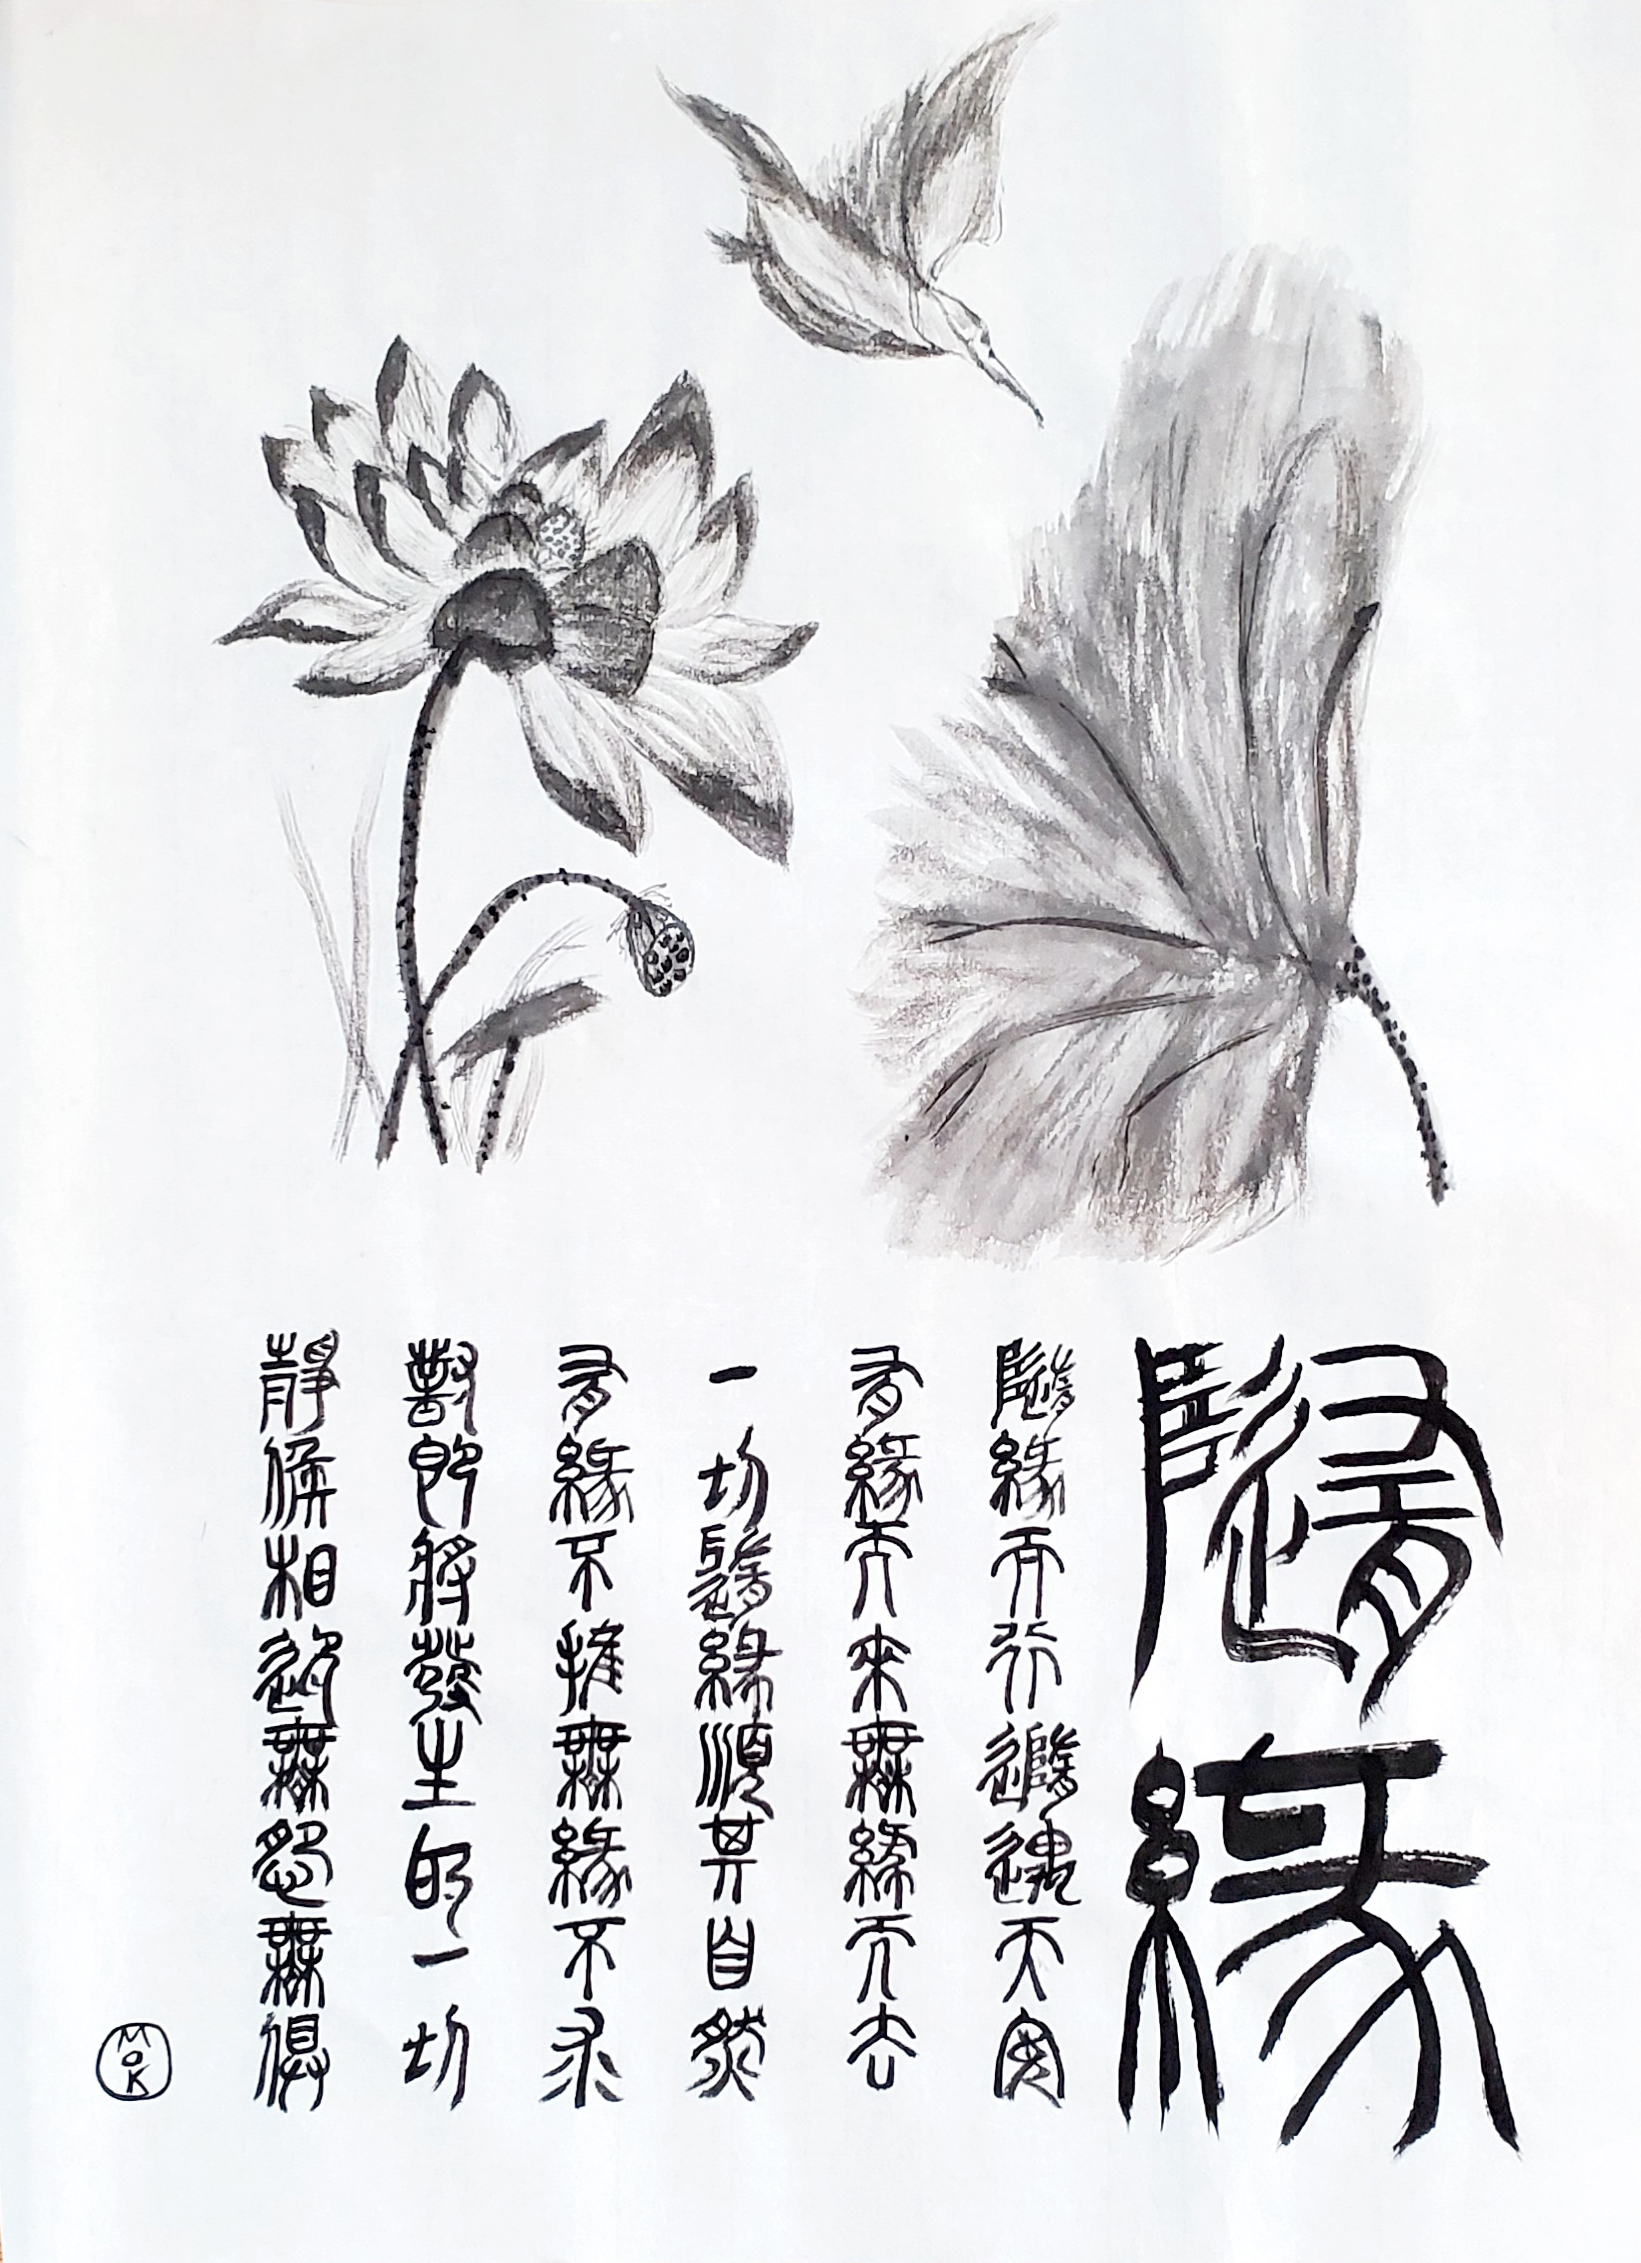 隨緣
隨緣而行隨遇而安
有緣而來無緣而去
一切隨緣順其自然
有緣不推無緣不求
對即將發生的一切
靜候相無怨無
MOK